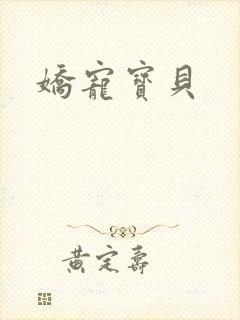 嬌寵寶貝
黃定壽